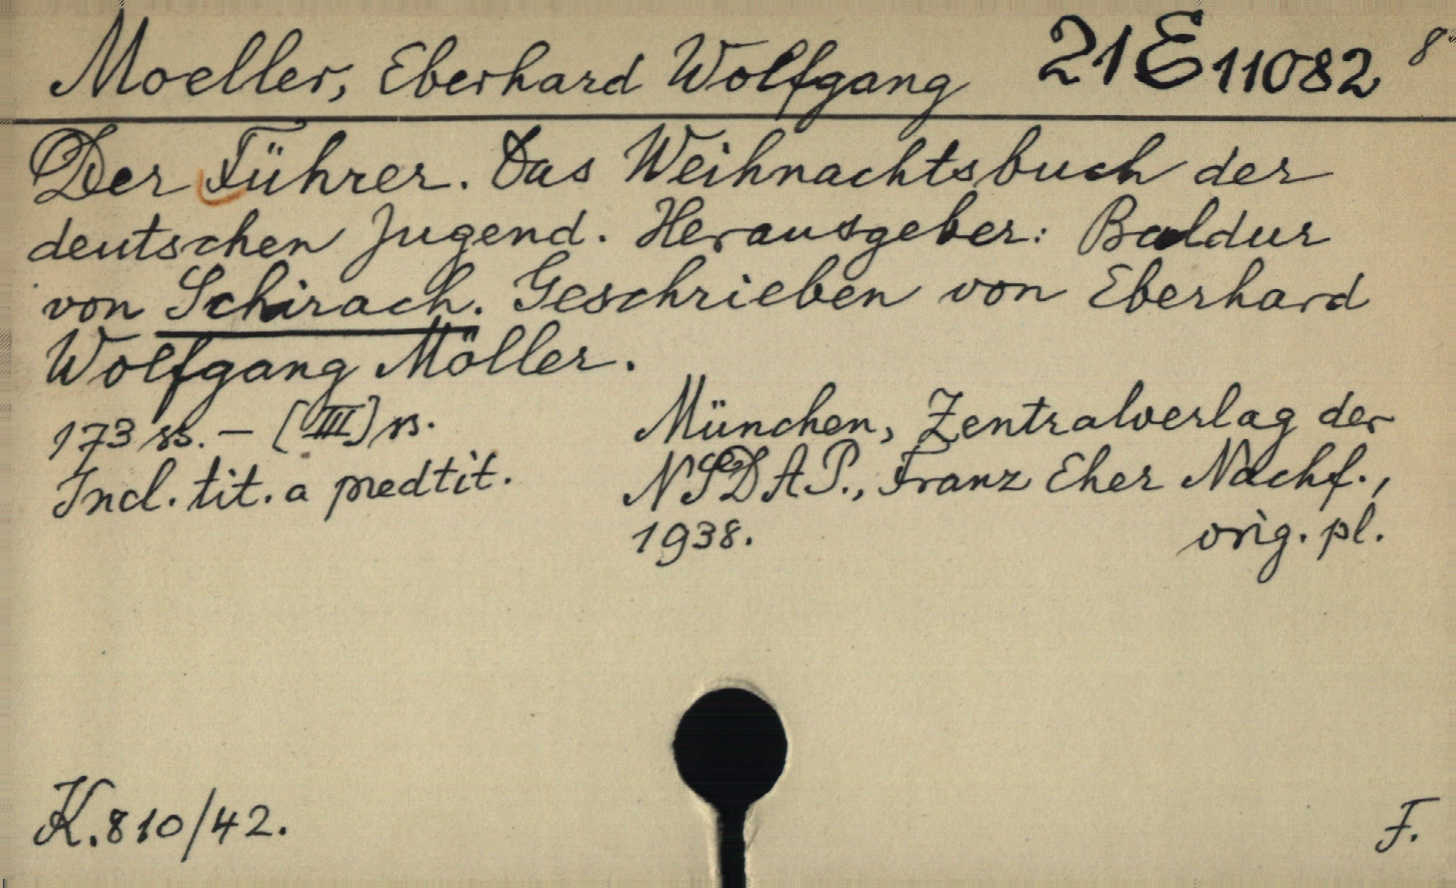 Moeller, Eberhard Wolfgang 21E11082 8°
Der Führer. Das Weihnachtsbuch der
deutschen Jugend. Herausgeber: Baldur
von Schirach. Geschrieben von Eberhard
Wolfgang Möller.
173 ss. - [III] ss.
Incl. tit. a předtit.
München, Zentralverlag der
NSDAP., Franz Eher Nachf.,
1938. orig. pl.
K.810/42. F.